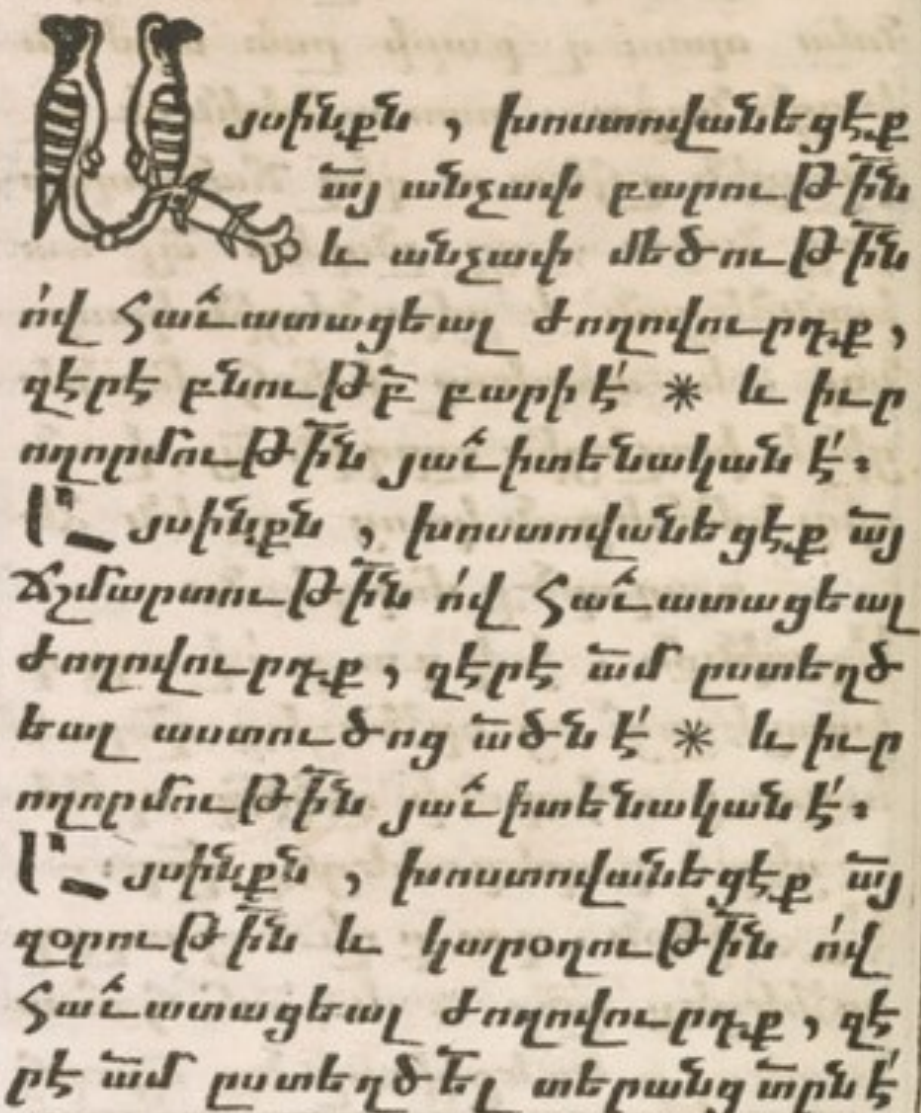 Այսինքն , խոստովանեցէք
այ անչափ բարութիւն
և անչափ մեծութիւն
ո՛վ հաւատացեալ ժողովուրդք ,
զէրէ բնութբ բարի է՛ * և իւր
ողորմութիւն յաւիտենական է՛ ։
Այսինքն , խոստովանեցէք այ
ճշմարտութիւն ո՛վ հաւատացեալ
ժողովուրդք , զէրէ ամ ըստեղծ
եալ աստուծոց ածն է՛ * և իւր
ողորմութիւն յաւիտենական է՛ ։
Այսինքն , խոստովանեցէք այ
զօրութիւն և կարօղութիւն ո՛վ
հաւատացեալ ժողովուրդք , զէ
րէ ամ ըստեղծել տերանց տրն է՛